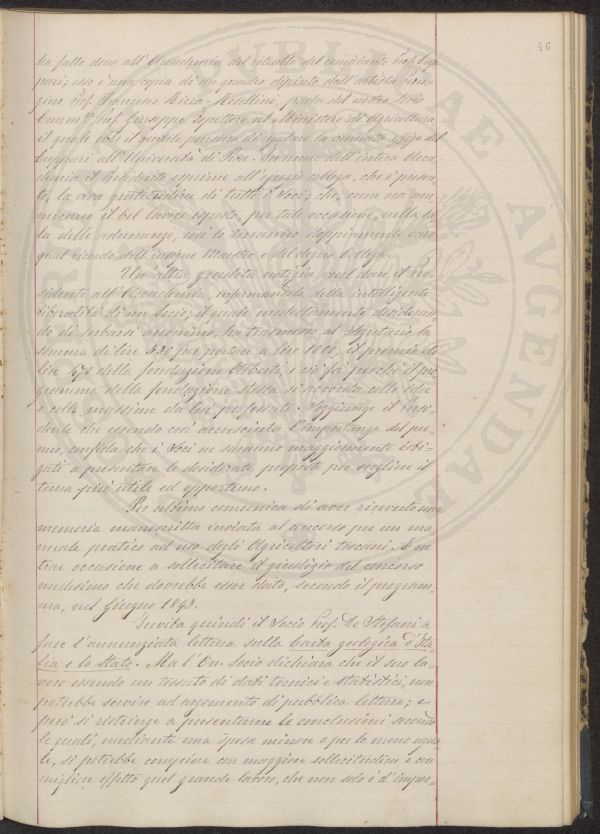 46
ha fatto dono all'Accademia del ritratto del compianto Prof. Cup-
pari; esso è una copia di un quadro dipinto dall'artista
Prof. Francesco, padre del nostro Socio
Comm.r Prof. Giuseppe Ispettore al Ministero di Agricoltura
il quale ebbe il gentile pensiero di
Cuppari all'Università di Pisa. In nome dell'intera Acca-
demia il Presidente esprime all'egregio collega, che è presen-
te, la viva gratitudine di tutti i Soci; che, come ora am-
mirano il bel lavoro esposto, per tale occasione, nella sa-
la delle adunanze, così lo terranno doppiamente caro
qual ricordo dell'insigne Maestro e del degno Collega.
Un'altra gradita notizia, vuol dare il Pre-
sidente all'Accademia, informandola della intelligente
liberalità di un Socio; il quale modestamente desideran-
do di serbarsi anonimo, ha trasmesso al Segretario la
somma di lire 530 per portare a lire 1000, il premio di
lire 470 della fondazione Alberti; e ciò fa perché il pro-
gramma della fondazione stessa si accorda colle idee
e colle massime da lui professate. Soggiunge il Presi-
dente che essendo così accresciuta l'importanza del pre-
mio, confida che i Soci ne saranno maggiormente obbli-
gati a presentare le desiderate proposte per scegliere il
tema più utile ed opportuno.
Per ultimo comunica di aver ricevuto una
memoria manoscritta inviata al concorso per un ma-
nuale pratico ad uso degli Agricoltori toscani. E ne
trae occasione a sollecitare il giudizio del concorso
medesimo che dovrebbe esser dato, secondo il program-
ma, nel Giugno 1893.
Invita quindi il Socio Prof. De Stefani a
fare l'annunziata lettura sulla Carta geologica d'Ita-
lia e lo Stato. Ma l'On. Socio dichiara che il suo la-
voro essendo un tessuto di dati tecnici e statistici, non
potrebbe servire ad argomento di pubblica lettura; e
però si restringe a presentarne le conclusioni secondo
le quali, mediante una spesa minore o per lo meno ugua-
le, si potrebbe compiere con maggiore sollecitudine e con
migliore effetto quel grande lavoro, che non solo è d'impor-